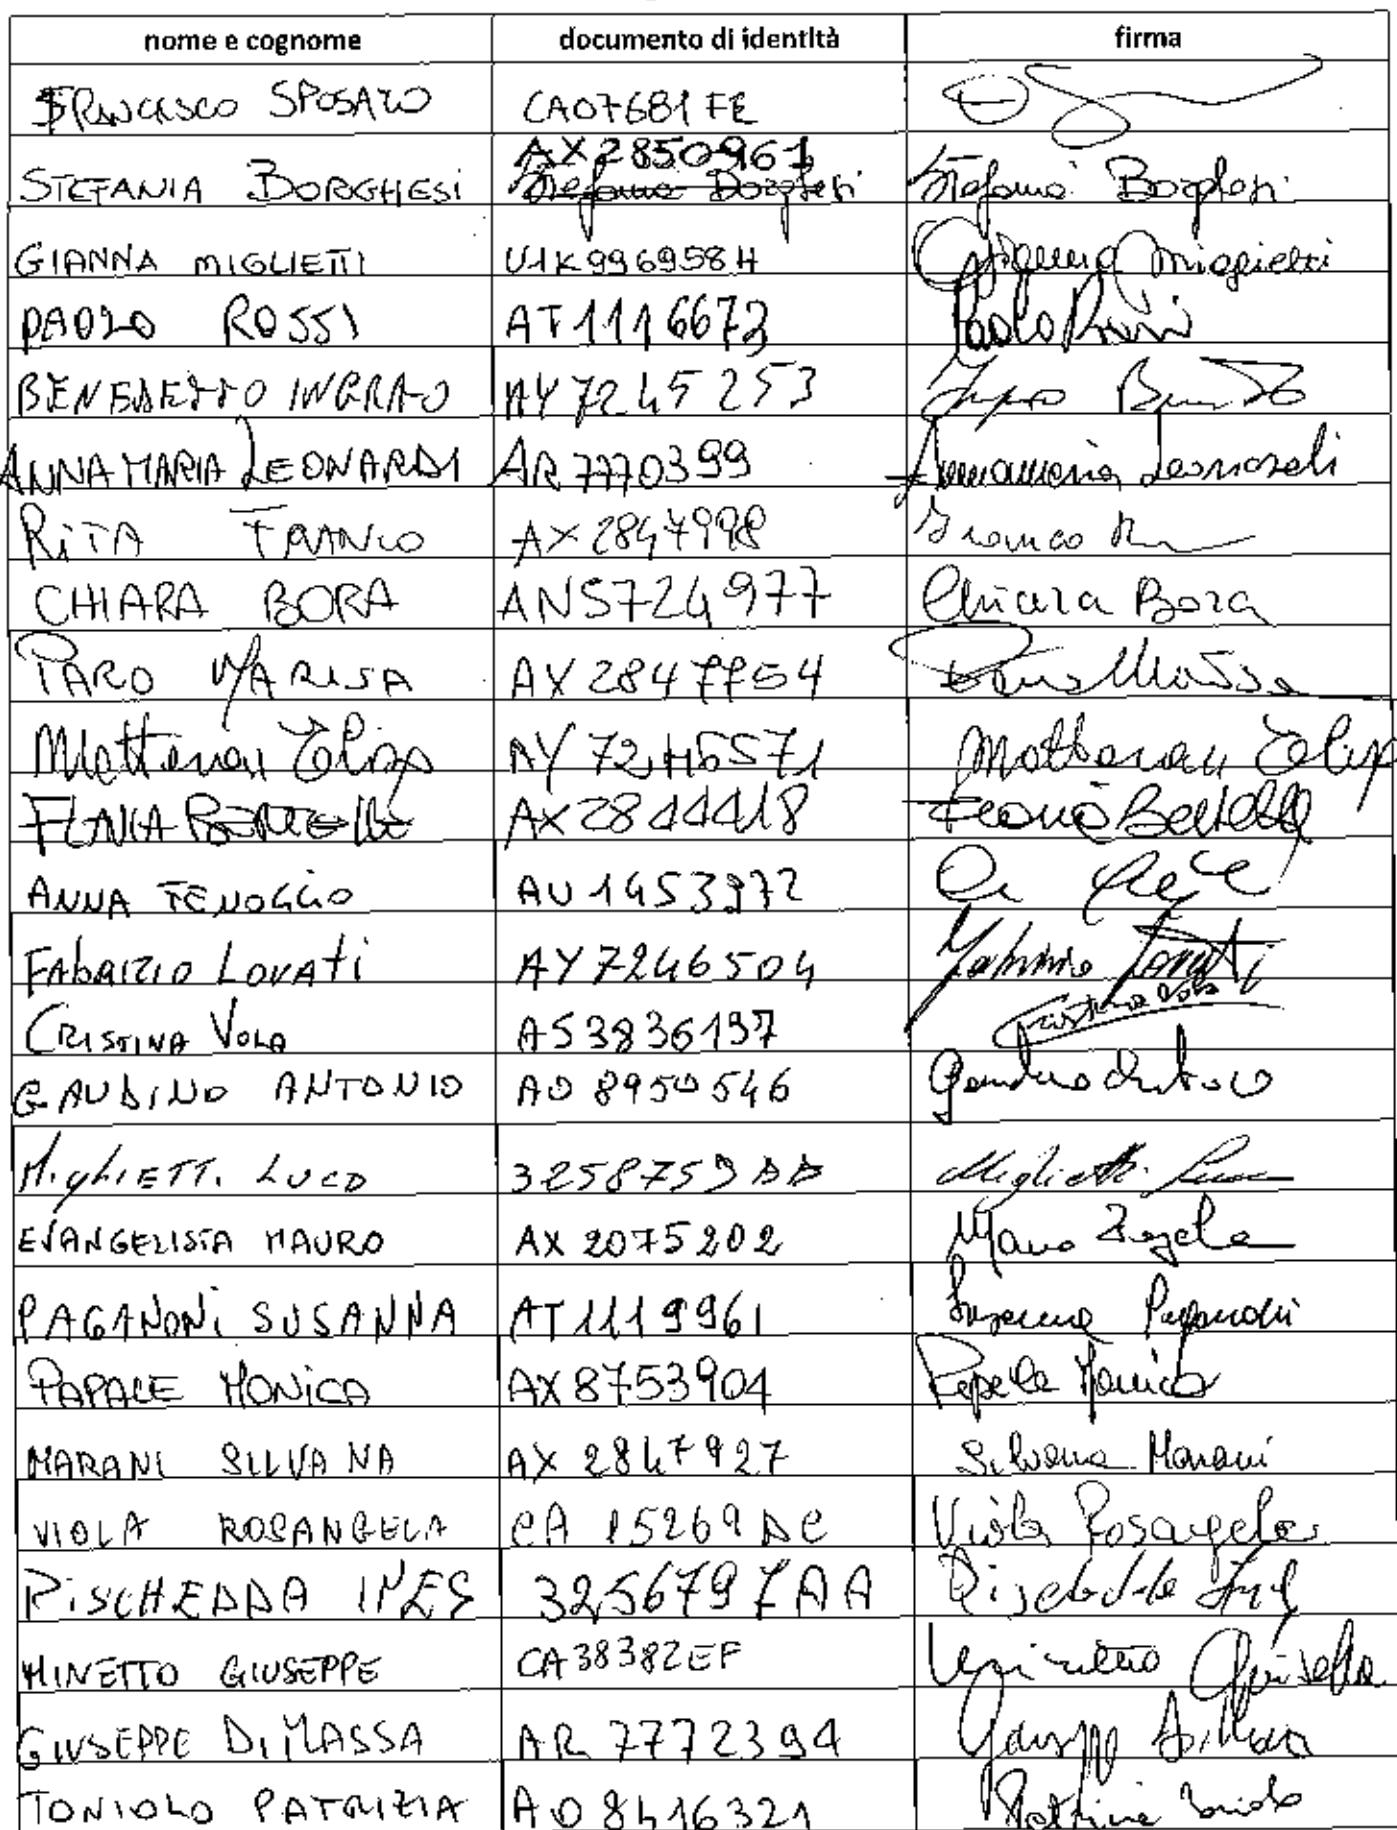 nome e cognome documento di identità firma
FRANCESCO SPOSATO CA07681FE
AX2850961
STEFANIA BORGHESI Stefania Borghesi Stefania Borghesi
GIANNA MIGLIETTI U1K996958H Gianna Miglietti
PAOLO ROSSI AT1116673 Paolo Rossi
BENEDETTO INGRAO AY7245253
ANNAMARIA LEONARDI AR7770399 Annamaria Leonardi
RITA FRANCO AX2847998 Franco
CHIARA BORA AN5724977 Chiara Bora
PARO MARISA AX2847754
Matterai AY7245571
FLAVIA AX2844418 Flavia
ANNA FENOGLIO AU1453972
FABRIZIO LOVATI AY7246504 Fabrizio Lovati
CRISTINA VOLA AS3836197 Cristina Vola
GAUDINO ANTONIO AO8950546 Gaudino Antonio
MIGLIETTI LUCO 3258759 Miglietti
EVANGELISTA MAURO AX2075202
PAGANONI SUSANNA AT1119961 Susanna Paganoni
PAPALE MONICA AX8753904 Papale Monica
MARANI SILVANA AX2847927 Silvana Marani
VIOLA ROSANGELA CA15269DC Viola Rosangela
PISCHEDDA INES 3256797AA
MINETTO GIUSEPPE CA38382EF
GIUSEPPE DI MASSA AR7772394
TONIOLO PATRIZIA AO8416321